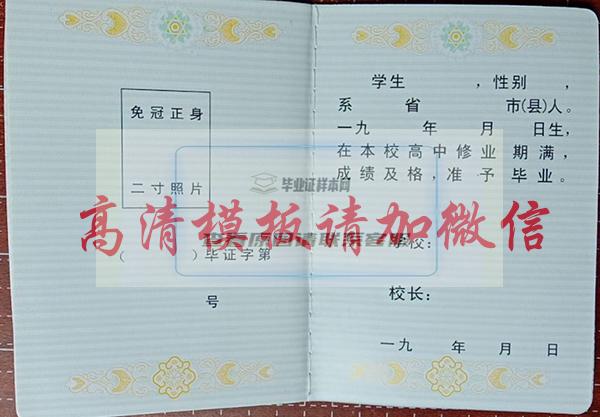 免冠正身
二寸照片
( )毕证字第
号
学生 ,性别 ,
系 省 市(县)人。
一九 年 月 日生,
在本校高中修业 期满,
成绩及格,准予毕业。
学校:
校长:
一九 年 月 日
毕业证样本网
高清模板请加微信